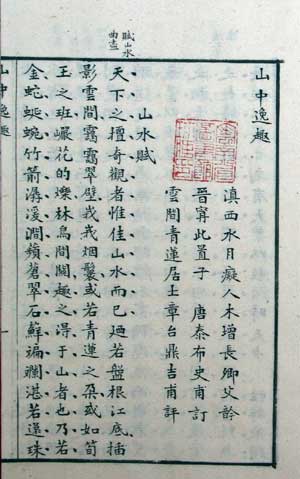 山中逸趣
滇西水月癡人木增長卿父
晉寧此置子 唐泰布史甫訂
雲間青蓮居士章台鼎吉甫評
山水賦
賦山水
曲盡
天下之擅奇觀者惟佳山水而已廼若盤根江底插
影雲間靄靄翠壁峩峩烟鬟或若青蓮之朶或如筍
王之班巖花的爍林鳥間關趣之得于山者也乃若
金蛇蜒蜿竹箭潺湲澗蘋蒼翠石蘚斒斕湛若遺珠
山中逸趣